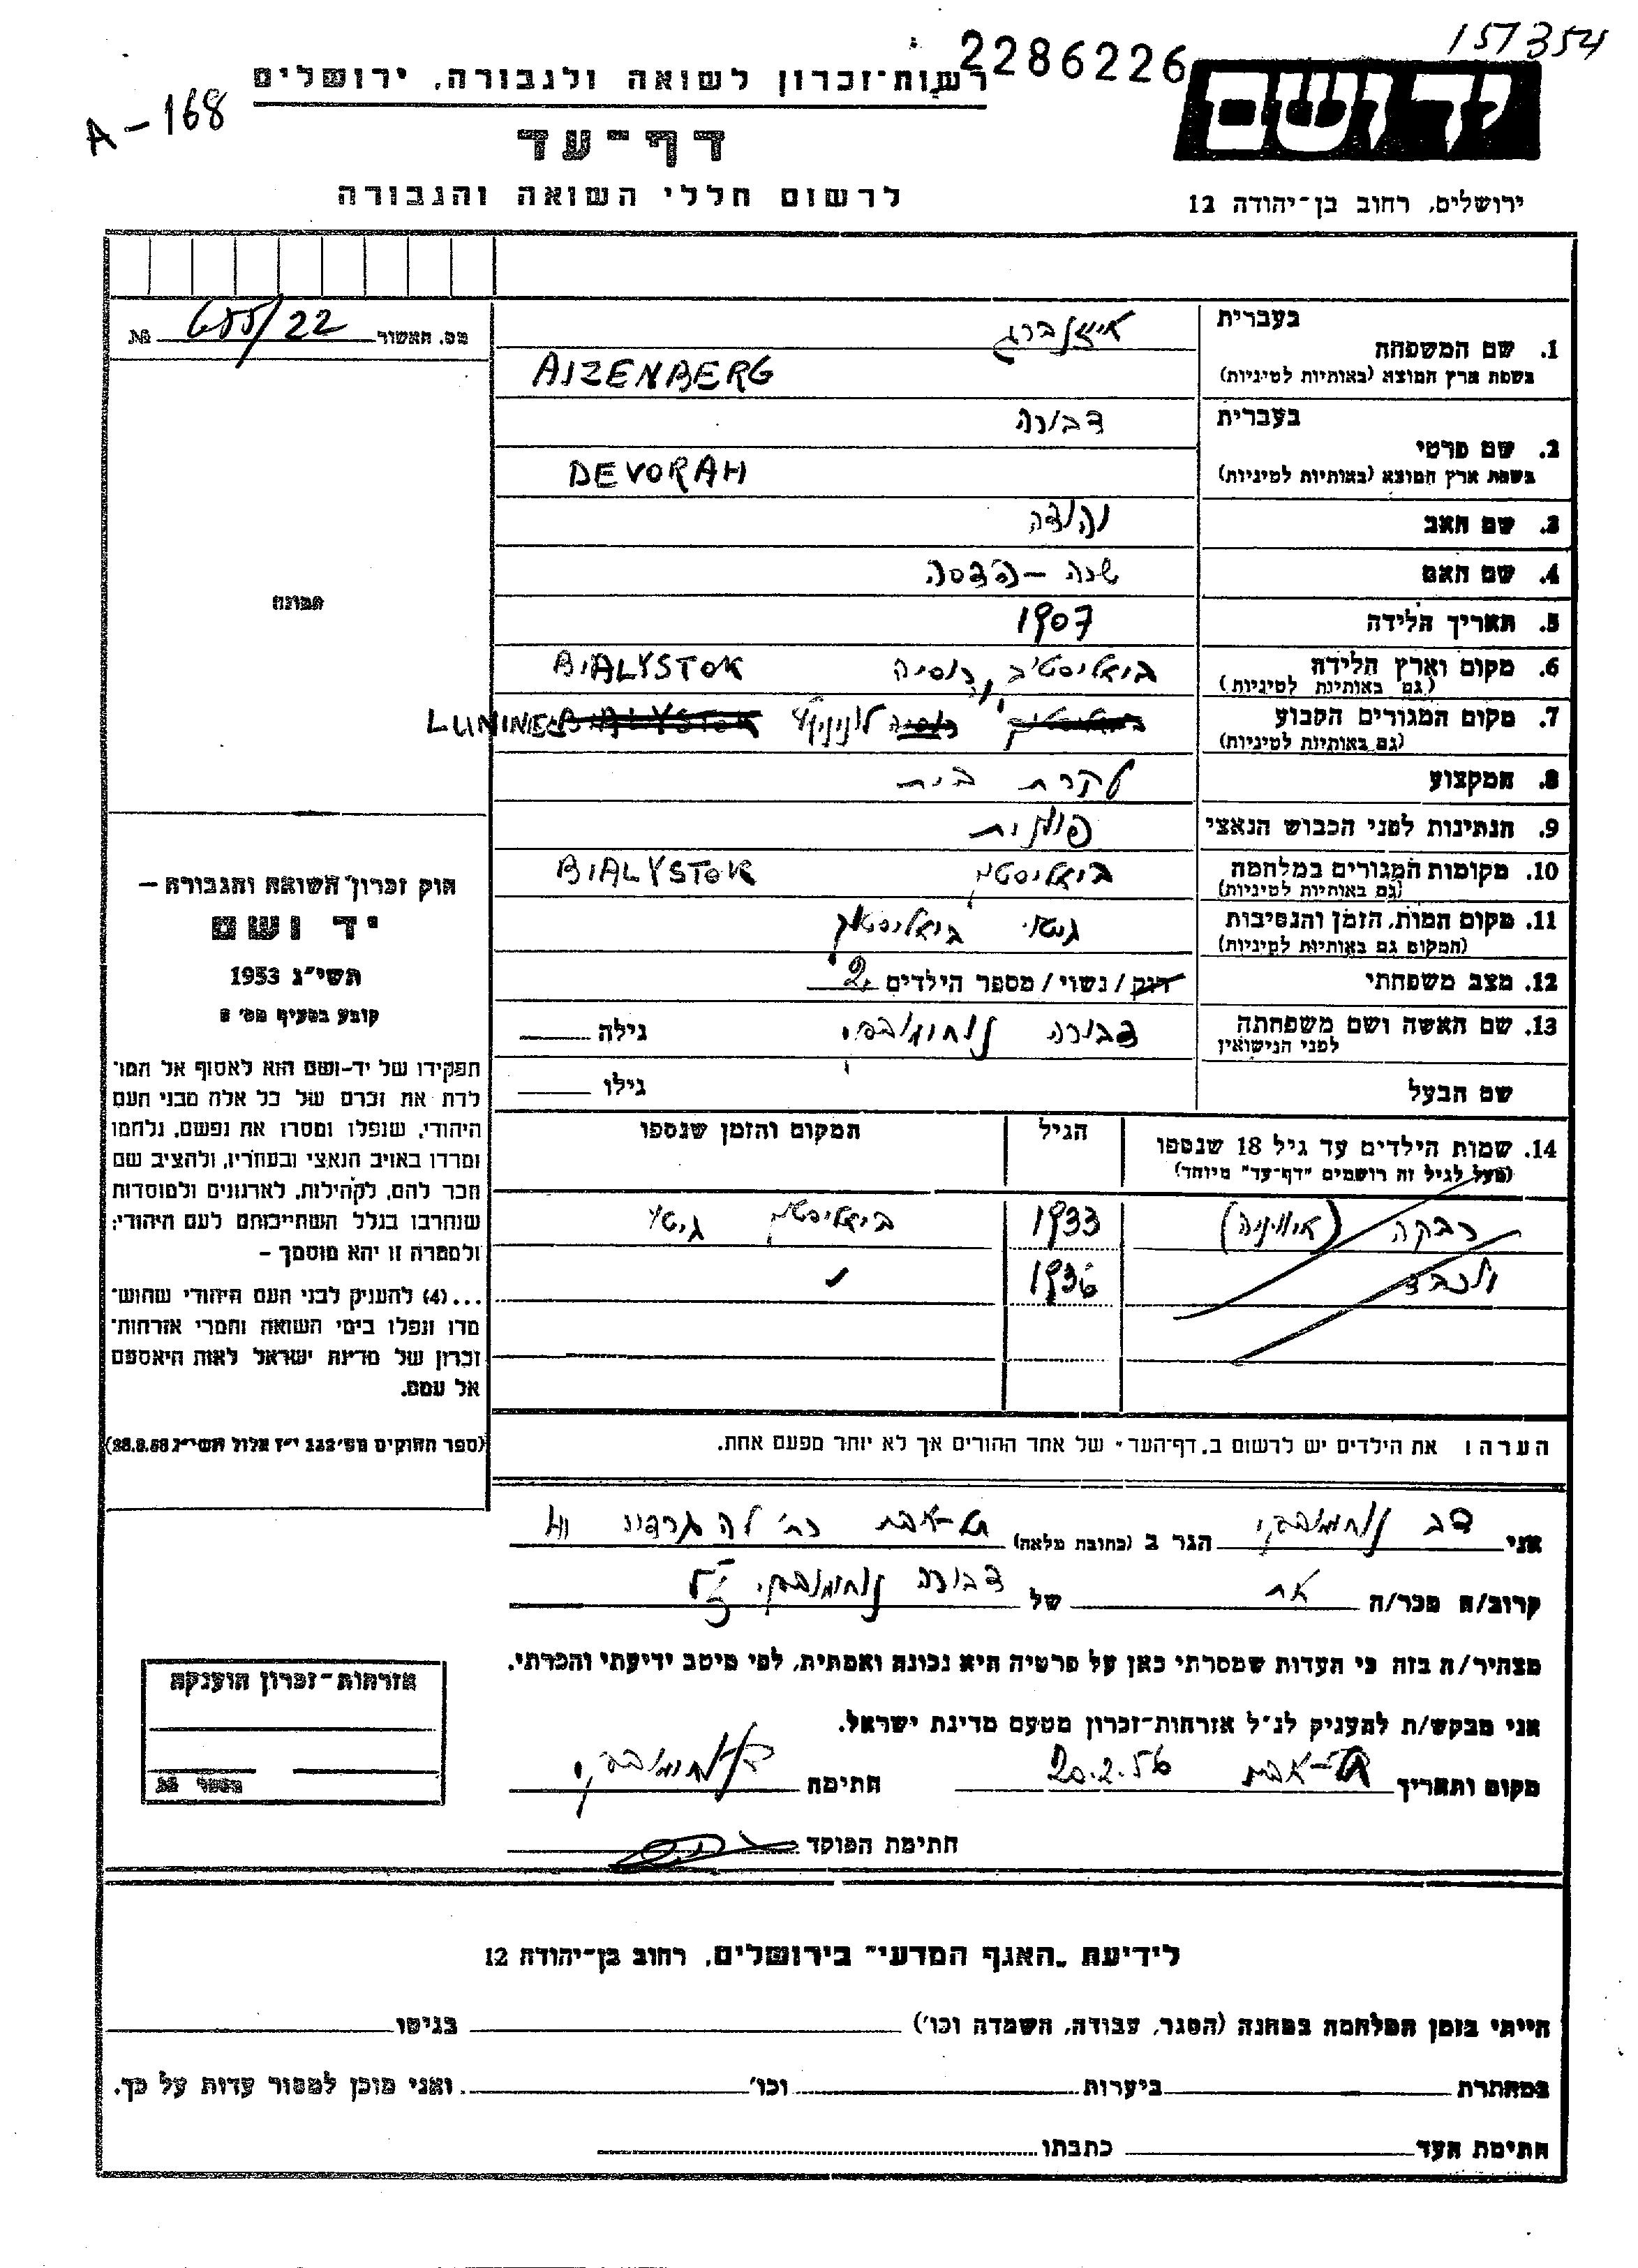 157354
2286226
A-168
יד ושם
רשות־זכרון לשואה ולגבורה, ירושלים
דף־עד
לרשום חללי השואה והגבורה
ירושלים, רחוב בן־יהודה 12
מס. האשור 655/22 №
בעברית
1. שם המשפחה
אייזנברג
בשפת ארץ המוצא (באותיות לטיניות)
AIZENBERG
בעברית
דבורה
2. שם פרטי
בשפת ארץ המוצא (באותיות לטיניות)
DEVORAH
3. שם האב יהודה
4. שם האם שנה - הדסה
5. תאריך הלידה 1907
6. מקום וארץ הלידה ביאליסטוק, רוסיה BIALYSTOK
(גם באותיות לטיניות)
7. מקום המגורים הקבוע
(גם באותיות לטיניות)
8. המקצוע עקרת בית
9. הנתינות לפני הכבוש הנאצי פולנית
10. מקומות המגורים במלחמה ביאליסטוק BIALYSTOK
(גם באותיות לטיניות)
11. מקום המות, הזמן והנסיבות גטו ביאליסטוק
(המקום גם באותיות לטיניות)
12. מצב משפחתי רוק / נשוי / מספר הילדים 2
13. שם האשה ושם משפחתה דבורה גילה
לפני הנישואין
שם הבעל גילו
14. שמות הילדים עד גיל 18 שנספו הגיל המקום והזמן שנספו
(מעל לגיל זה רושמים "דף־עד" מיוחד)
רבקה 1933 ביאליסטוק גיטו
1936 ✓
הערה: את הילדים יש לרשום ב„דף־העד" של אחד ההורים אך לא יותר מפעם אחת.
תמונה
חוק זכרון השואה והגבורה –
יד ושם
תשי״ג 1953
קובע בסעיף מס׳ 2
תפקידו של יד-ושם הוא לאסוף אל המו־
לדת את זכרם של כל אלה מבני העם
היהודי, שנפלו ומסרו את נפשם, נלחמו
ומרדו באויב הנאצי ובעוזריו, ולהציב שם
וזכר להם, לקהילות, לארגונים ולמוסדות
שנחרבו בגלל השתייכותם לעם היהודי;
ולמטרה זו יהא מוסמך –
...(4) להעניק לבני העם היהודי שהוש־
מדו ונפלו בימי השואה והמרי אזרחות־
זכרון של מדינת ישראל לאות היאספם
אל עמם.
(ספר החוקים מס׳ 132 י״ז אלול תשי״ג 28.8.53)
אני דב הגר ב (כתובת מלאה)
קרוב/ה מכר/ה אח של דבורה ז"ל
מצהיר/ה בזה כי העדות שמסרתי כאן על פרטיה היא נכונה ואמתית, לפי מיטב ידיעתי והכרתי.
אני מבקש/ת להעניק לנ״ל אזרחות־זכרון מטעם מדינת ישראל.
מקום ותאריך 20.2.56 חתימה
חתימת הפוקד
אזרחות-זכרון הוענקה
מספר №
לידיעת „האגף המדעי" בירושלים, רחוב בן־יהודה 12
הייתי בזמן המלחמה במחנה (הסגר, עבודה, השמדה וכו׳) בגיטו
במחתרת ביערות וכו׳ ואני מוכן למסור עדות על כך.
חתימת העד כתבתו